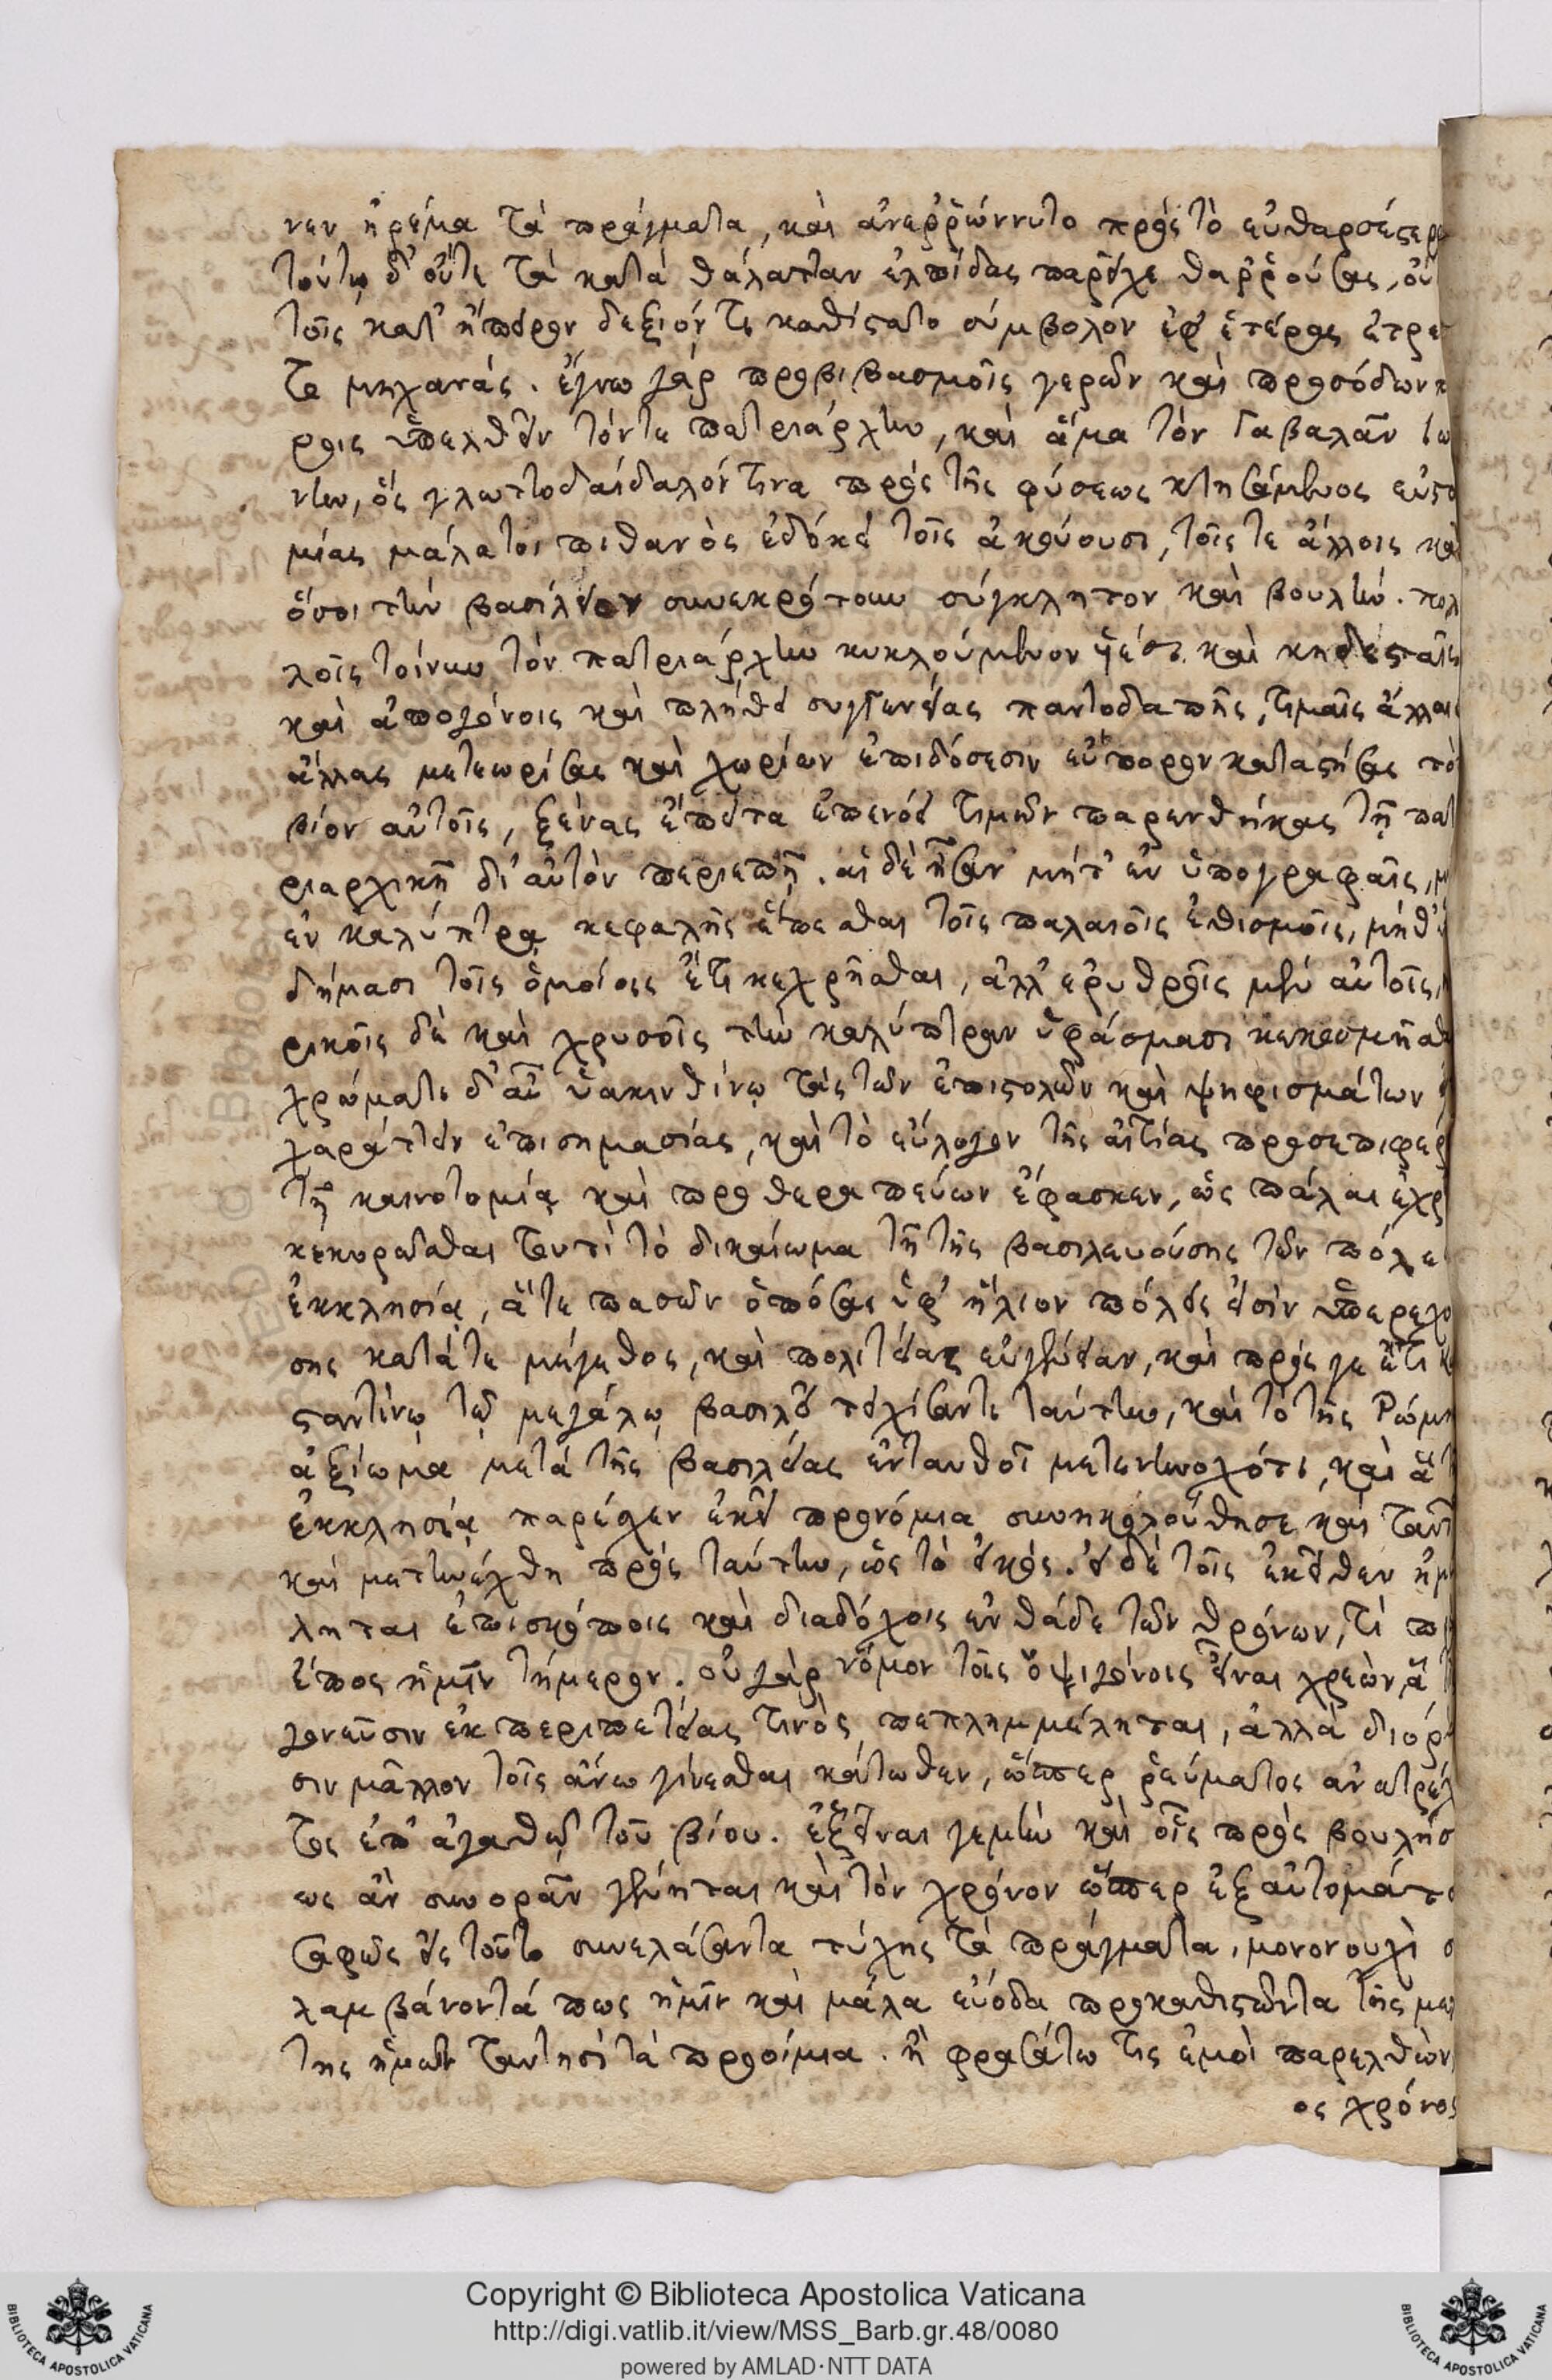 νεν ἠρέμα τὰ πράγματα, καὶ ἀνερῤῥώννυτο πρὸς τὸ εὐθαρσέστερ
τούτῳ δ' οὔτε τὰ κατὰ θάλατταν ἐλπίδας παρεῖχε θαῤῥούσας, οὐ
τοῖς κατ' ἤπειρον δεξιόν τι καθίστατο σύμβολον ἐφ' ἑτέρας ἐτρε
το μηχανάς. ἔγνω γὰρ προβιβασμοῖς γερῶν καὶ προσόδων π
ροις ὑπελθεῖν τόν τε πατριάρχην, καὶ ἅμα τὸν Γαβαλᾶν ἰω
νην, ὃς γλωττοδαίδαλόν τινα πρὸς τῆς φύσεως κτησάμενος εὐστο
μίας μάλα τοι πιθανὸς ἐδόκει τοῖς ἀκούουσι, τοῖς τε ἄλλοις καὶ
ὅσοι τὴν βασίλειον συνεκρότουν σύγκλητον καὶ βουλήν. πολ
λοῖς τοίνυν τὸν πατριάρχην κυκλούμενον υἱέσι καὶ κηδεσταῖς
καὶ ἀπογόνοις καὶ πλήθει συγγενείας παντοδαπῆς, τιμαῖς ἄλλαις
ἄλλας μετεωρίσας καὶ χωρίων ἐπιδόσεσιν εὔπορον καταστήσας τὸ
βίον αὐτοῖς, ξένας ἔπειτα ἐπενόει τιμῶν παρενθήκας τῇ πατ
ριαρχικῇ δι' αὐτὸν περιωπῇ. αἱ δὲ ἦσαν μήτ' ἐν ὑπογραφαῖς, μ
ἐν καλύπτρᾳ κεφαλῆς ἕπεσθαι τοῖς παλαιοῖς ἐθισμοῖς, μήθ'
δήμασι τοῖς ὁμοίοις ἔτι κεχρῆσθαι, ἀλλ' ἐρυθροῖς μὲν αὐτοῖς,
ρικοῖς δὲ καὶ χρυσοῖς τὴν καλύπτραν ὑφάσμασι κεκοσμῆσθ
χρώματι δ' αὖ ὑακινθίνῳ τὰς τῶν ἐπιστολῶν καὶ ψηφισμάτων
χαράττειν ἐπισημασίας, καὶ τὸ εὔλογον τῆς αἰτίας προσεπιφέρ
τῇ καινοτομίᾳ καὶ προθεραπεύων ἔφασκεν, ὡς πάλαι ἐχρ
κεκυρῶσθαι τουτὶ τὸ δικαίωμα τῇ τῆς βασιλευούσης τῶν πόλε
ἐκκλησίᾳ, ἅτε πασῶν ὁπόσαι ὑφ' ἥλιον πόλεις εἰσὶν ὑπερεχο
σης κατά τε μέγεθος, καὶ πολιτείας εὐγένειαν, καὶ πρός γε ἔτι κ
σταντίνῳ τῷ μεγάλῳ βασιλεῖ τειχίσαντι ταύτην, καὶ τὸ τῆς Ῥώμη
ἀξίωμα μετὰ τῆς βασιλείας ἐνταυθοῖ μετενηνοχότι, καὶ ἃ τ
ἐκκλησίᾳ παρέσχεν ἐκεῖ προνόμια συνηκολούθησε καὶ ταῦτ
καὶ μετηνέχθη πρὸς ταύτην, ὡς τὸ εἰκός. εἰ δὲ τοῖς ἐκεῖθεν ἠμ
ληται ἐπισκόποις καὶ διαδόχοις ἐνθάδε τῶν θρόνων, τί π
ἔπος ἡμῖν τήμερον. οὐ γὰρ νόμον τοῖς ὀψιγόνοις εἶναι χρεὼν, ἃ τ
γονεῦσιν ἐκ περιπετείας τινὸς πεπλημμέληται, ἀλλὰ διόρ
σιν μᾶλλον τοῖς ἄνω γίνεσθαι κάτωθεν, ὥσπερ ῥεύματος ἀνατρέχ
τος ἐπ' ἀγαθῷ τοῦ βίου. ἐξεῖναι γεμὴν καὶ οἷς πρὸς βουλήσ
εως ἂν συνορᾶν γένηται καὶ τὸν χρόνον ὥσπερ ἐξ αὐτομάτο
σαφῶς εἰς τοῦτο συνελάσαντα τύχης τὰ πράγματα, μονονουχὶ σ
λαμβάνοντά πως ἡμῖν καὶ μάλα εὔοδα προκαθιστῶντα τῆς με
της ἡμῶν ταυτησὶ τὰ προοίμια. ἢ φρασάτω τις ἐμοὶ παρελθὼν
ος χρόνος
Copyright © Biblioteca Apostolica Vaticana
http://digi.vatlib.it/view/MSS_Barb.gr.48/0080
powered by AMLAD·NTT DATA
BIBLIOTECA APOSTOLICA VATICANA
BIBLIOTECA APOSTOLICA VATICANA